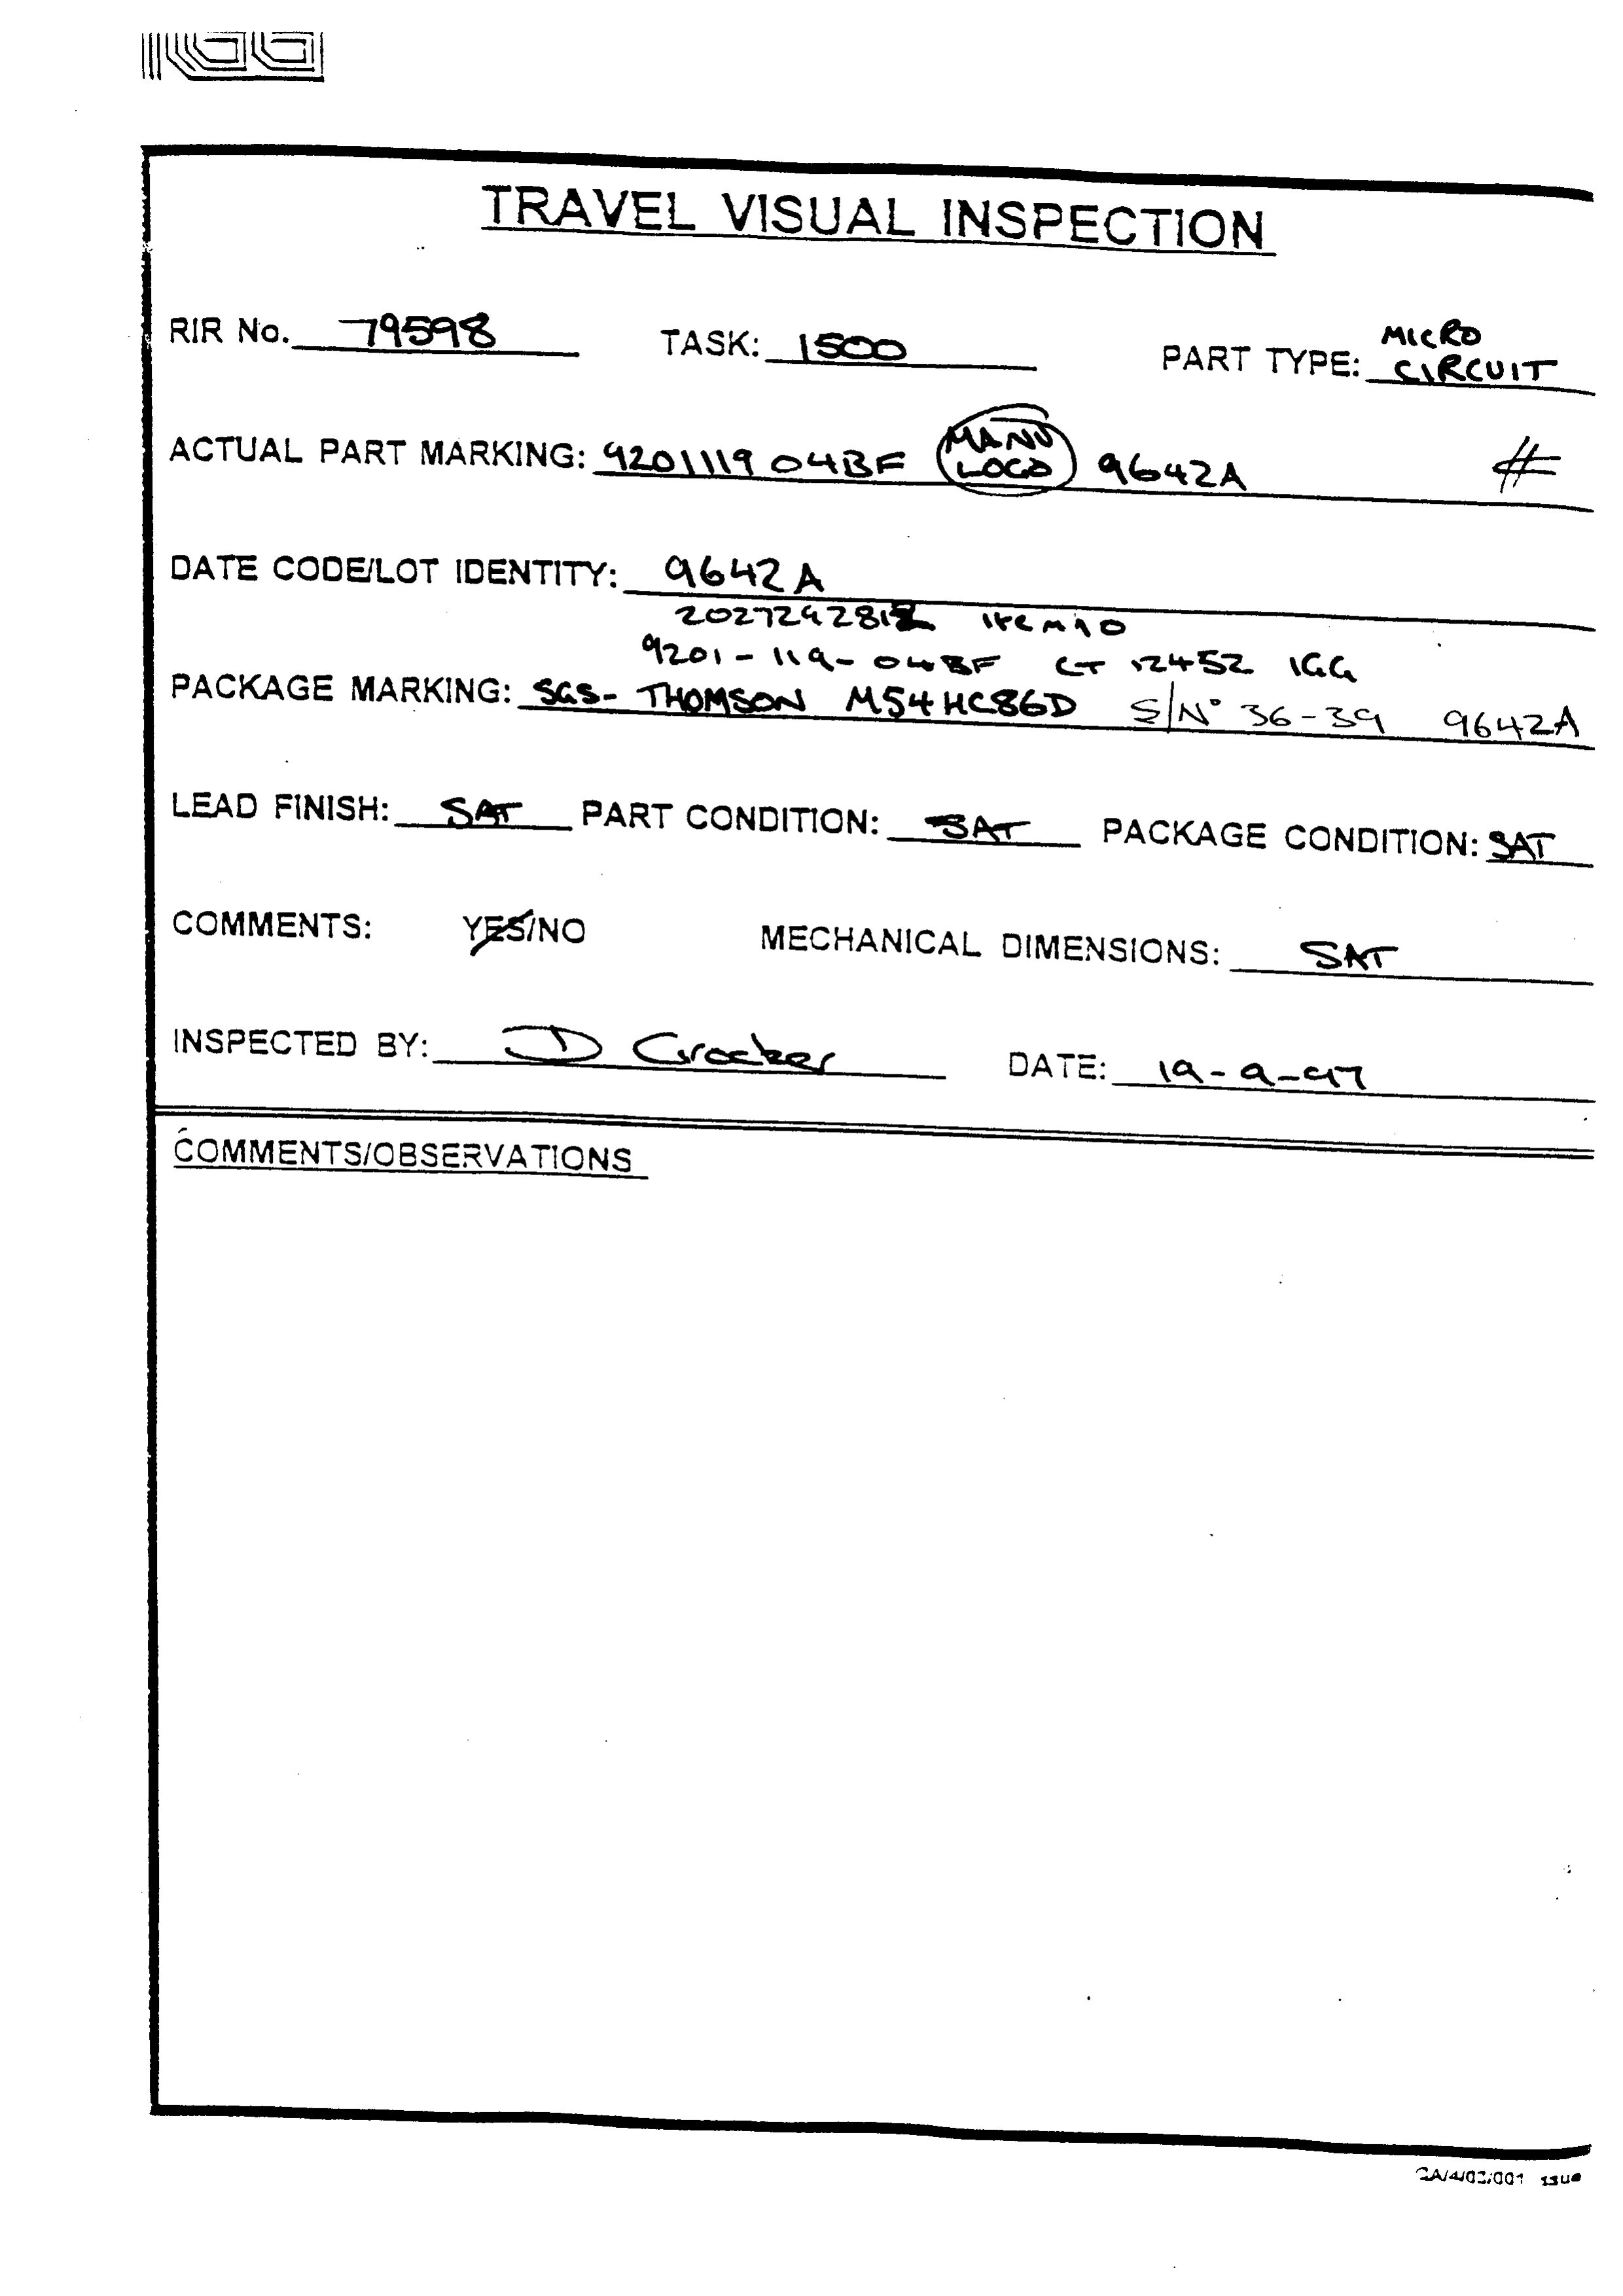 IGG
TRAVEL VISUAL INSPECTION
RIR No. 79598 TASK: 1500 PART TYPE: MICRO CIRCUIT
ACTUAL PART MARKING: 9201119 04BF MANU LOGO 9642A #
DATE CODE/LOT IDENTITY: 9642A
item 10
9201-119-04BF CT 12452 IGG
PACKAGE MARKING: SGS-THOMSON M54HC86D S/N° 36-39 9642A
LEAD FINISH: SAT PART CONDITION: SAT PACKAGE CONDITION: SAT
COMMENTS: YES/NO MECHANICAL DIMENSIONS: SAT
INSPECTED BY: D Crocker DATE: 19-9-97
COMMENTS/OBSERVATIONS